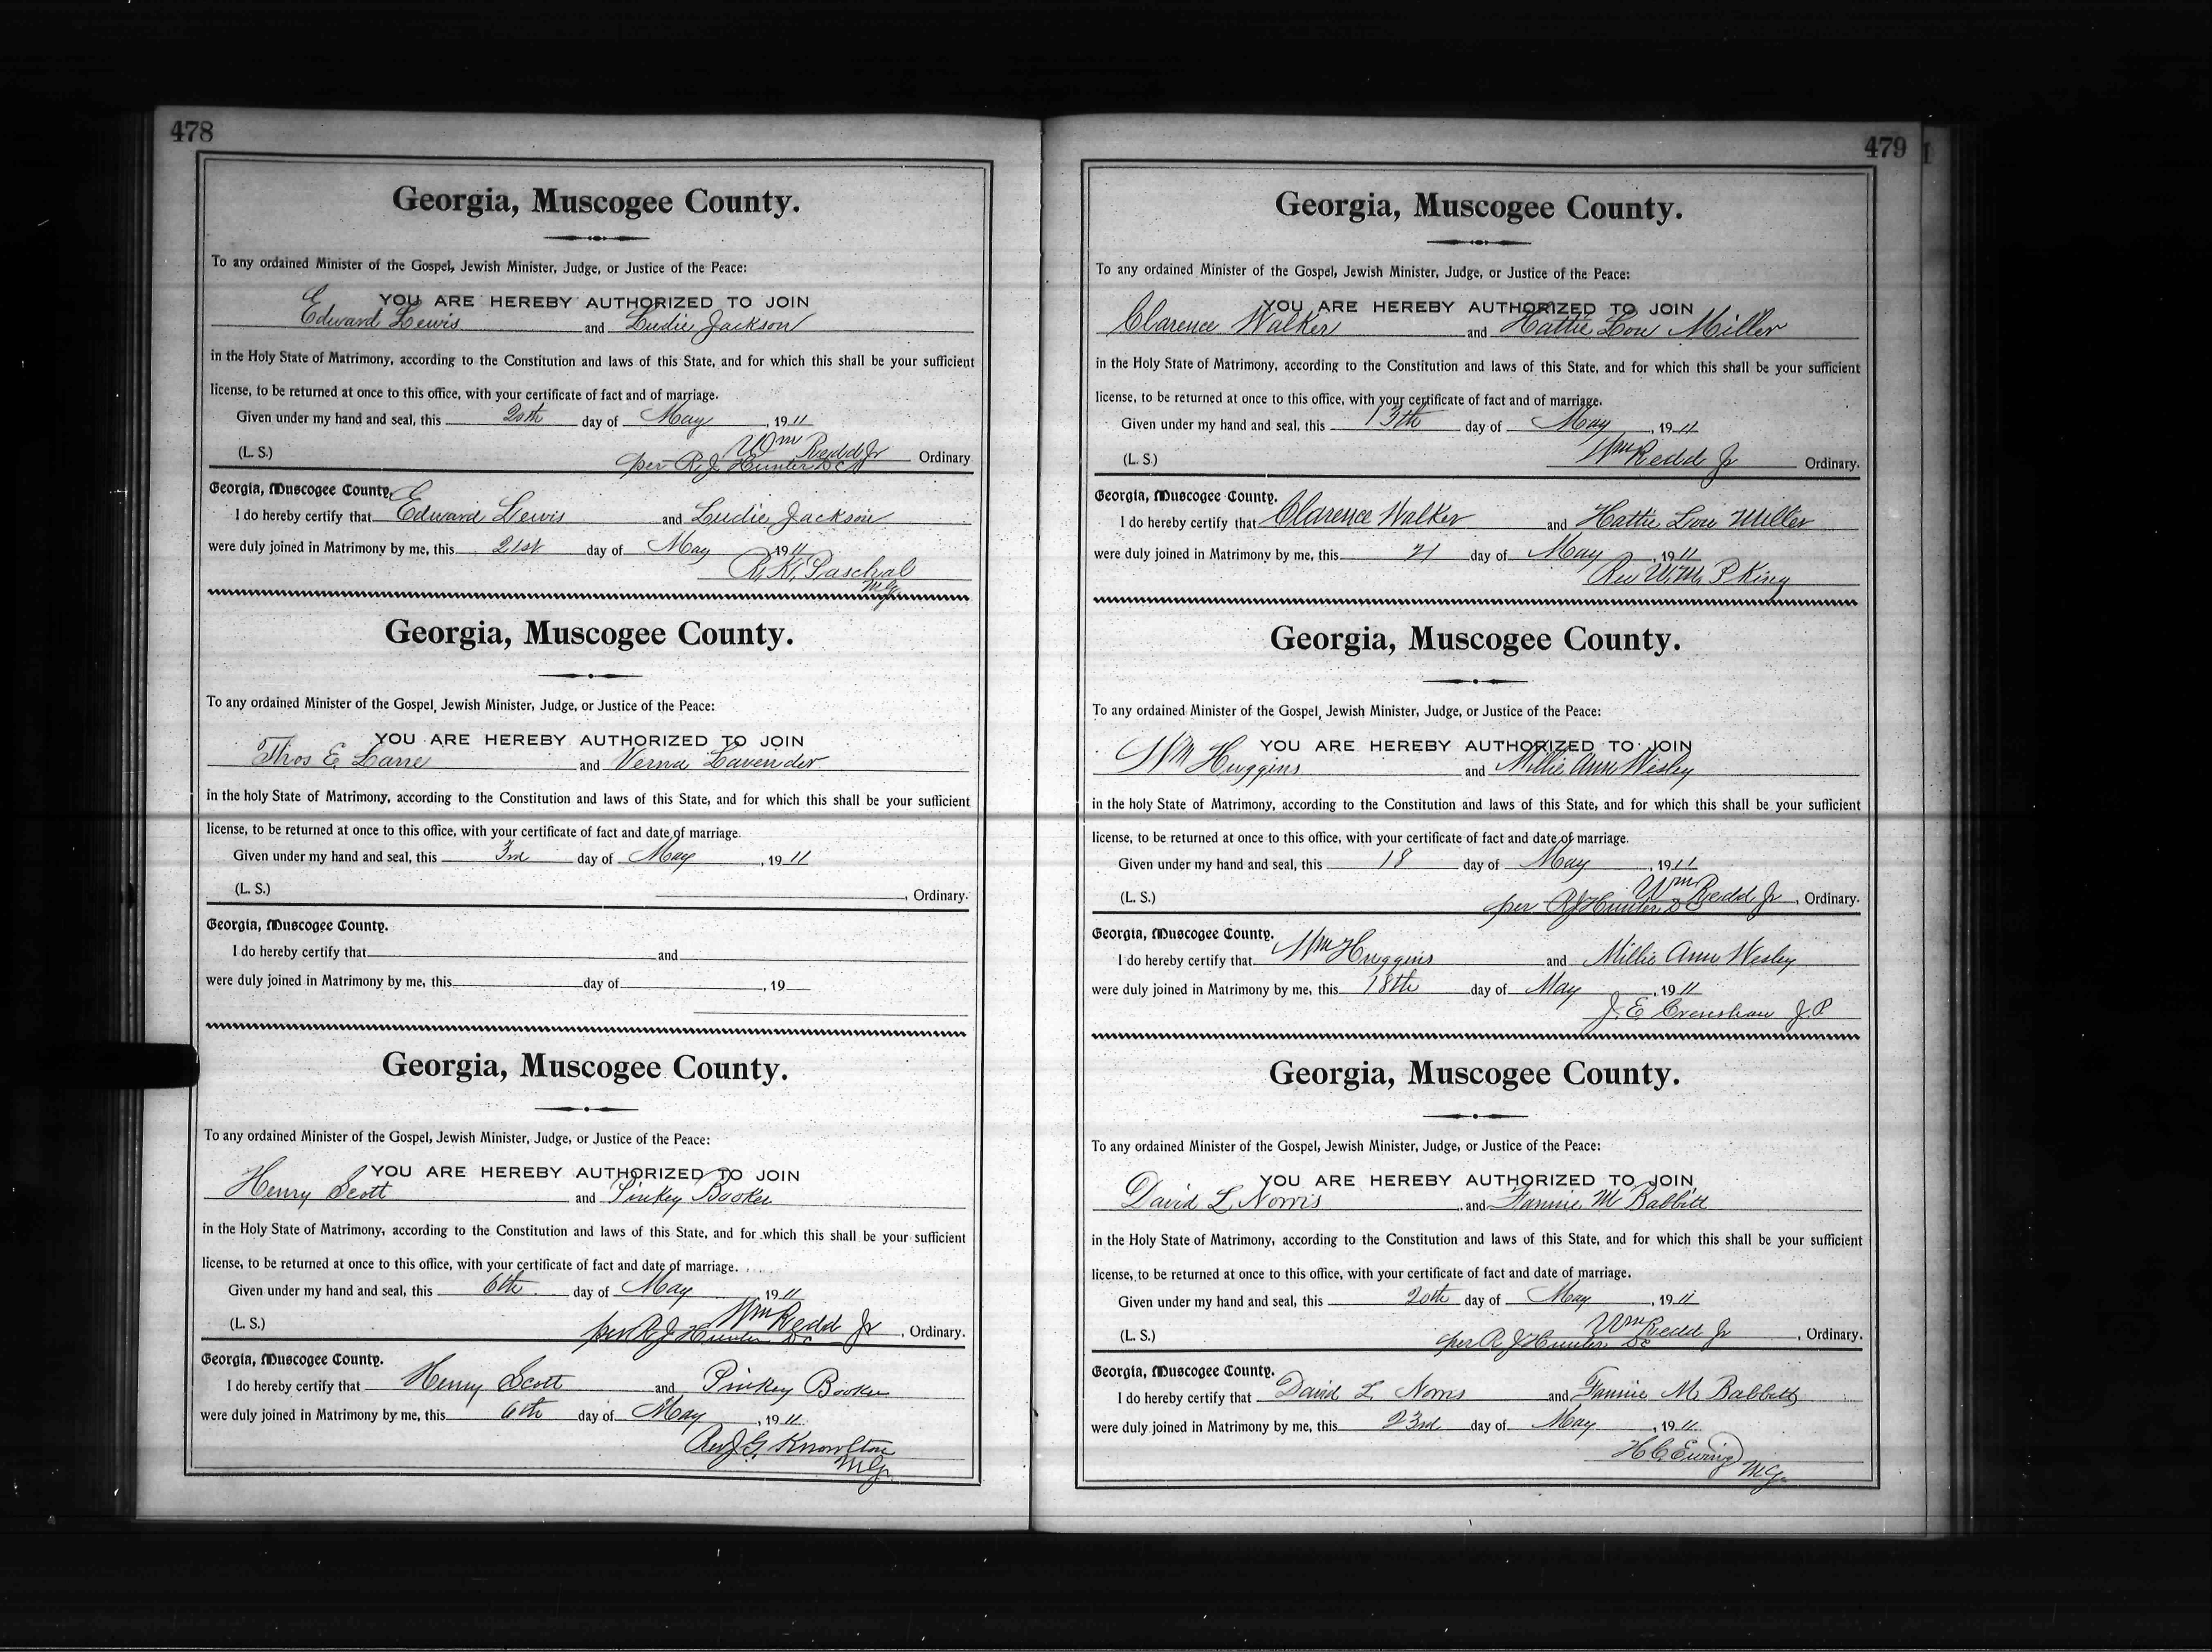 478
Georgia, Muscogee County.
To any ordained Minister of the Gospel, Jewish Minister, Judge, or Justice of the Peace:
YOU ARE HEREBY AUTHORIZED TO JOIN
Edward Lewis and Ludie Jackson
in the Holy State of Matrimony, according to the Constitution and laws of this State, and for which this shall be your sufficient
license, to be returned at once to this office, with your certificate of fact and of marriage.
Given under my hand and seal, this 20th day of May, 1911
Wm Redd Jr
(L. S.) per R. J. Hunter DC Ordinary
Georgia, Muscogee County.
I do hereby certify that Edward Lewis and Ludie Jackson
were duly joined in Matrimony by me, this 21st day of May 1911
R. K. Paschal
M.G.
Georgia, Muscogee County.
To any ordained Minister of the Gospel, Jewish Minister, Judge, or Justice of the Peace:
YOU ARE HEREBY AUTHORIZED TO JOIN
Thos E. Lane and Verna Lavender
in the holy State of Matrimony, according to the Constitution and laws of this State, and for which this shall be your sufficient
license, to be returned at once to this office, with your certificate of fact and date of marriage.
Given under my hand and seal, this 3rd day of May, 1911
(L. S.) , Ordinary.
Georgia, Muscogee County.
I do hereby certify that and
were duly joined in Matrimony by me, this day of , 19
Georgia, Muscogee County.
To any ordained Minister of the Gospel, Jewish Minister, Judge, or Justice of the Peace:
YOU ARE HEREBY AUTHORIZED TO JOIN
Henry Scott and Pinkey Booker
in the Holy State of Matrimony, according to the Constitution and laws of this State, and for which this shall be your sufficient
license, to be returned at once to this office, with your certificate of fact and date of marriage.
Given under my hand and seal, this 6th day of May, 1911
Wm Redd Jr
(L. S.) per R J Hunter DC , Ordinary.
Georgia, Muscogee County.
I do hereby certify that Henry Scott and Pinkey Booker
were duly joined in Matrimony by me, this 6th day of May, 1911.
Rev J. G. Knowlton
M.G.
479
Georgia, Muscogee County.
To any ordained Minister of the Gospel, Jewish Minister, Judge, or Justice of the Peace:
YOU ARE HEREBY AUTHORIZED TO JOIN
Clarence Walker and Hattie Lou Miller
in the Holy State of Matrimony, according to the Constitution and laws of this State, and for which this shall be your sufficient
license, to be returned at once to this office, with your certificate of fact and of marriage.
Given under my hand and seal, this 13th day of May, 1911
(L. S.) Wm Redd Jr Ordinary.
Georgia, Muscogee County.
I do hereby certify that Clarence Walker and Hattie Lou Miller
were duly joined in Matrimony by me, this 21 day of May, 1911
Rev W.M. P King
Georgia, Muscogee County.
To any ordained Minister of the Gospel, Jewish Minister, Judge, or Justice of the Peace:
YOU ARE HEREBY AUTHORIZED TO JOIN
Wm Huggins and Millie Ann Wesley
in the holy State of Matrimony, according to the Constitution and laws of this State, and for which this shall be your sufficient
license, to be returned at once to this office, with your certificate of fact and date of marriage.
Given under my hand and seal, this 18 day of May, 1911
Wm Redd Jr
(L. S.) per R J Hunter DC , Ordinary.
Georgia, Muscogee County.
I do hereby certify that Wm Huggins and Millie Ann Wesley
were duly joined in Matrimony by me, this 18th day of May, 1911
J. E. Crenshaw J. P
Georgia, Muscogee County.
To any ordained Minister of the Gospel, Jewish Minister, Judge, or Justice of the Peace:
YOU ARE HEREBY AUTHORIZED TO JOIN
David L. Norris and Fannie M Babbitt
in the Holy State of Matrimony, according to the Constitution and laws of this State, and for which this shall be your sufficient
license, to be returned at once to this office, with your certificate of fact and date of marriage.
Given under my hand and seal, this 20th day of May, 1911
Wm Redd Jr
(L. S.) per R J Hunter DC , Ordinary.
Georgia, Muscogee County.
I do hereby certify that David L Norris and Fannie M. Babbitt
were duly joined in Matrimony by me, this 23rd day of May, 1911.
H C Ewing
M.G.